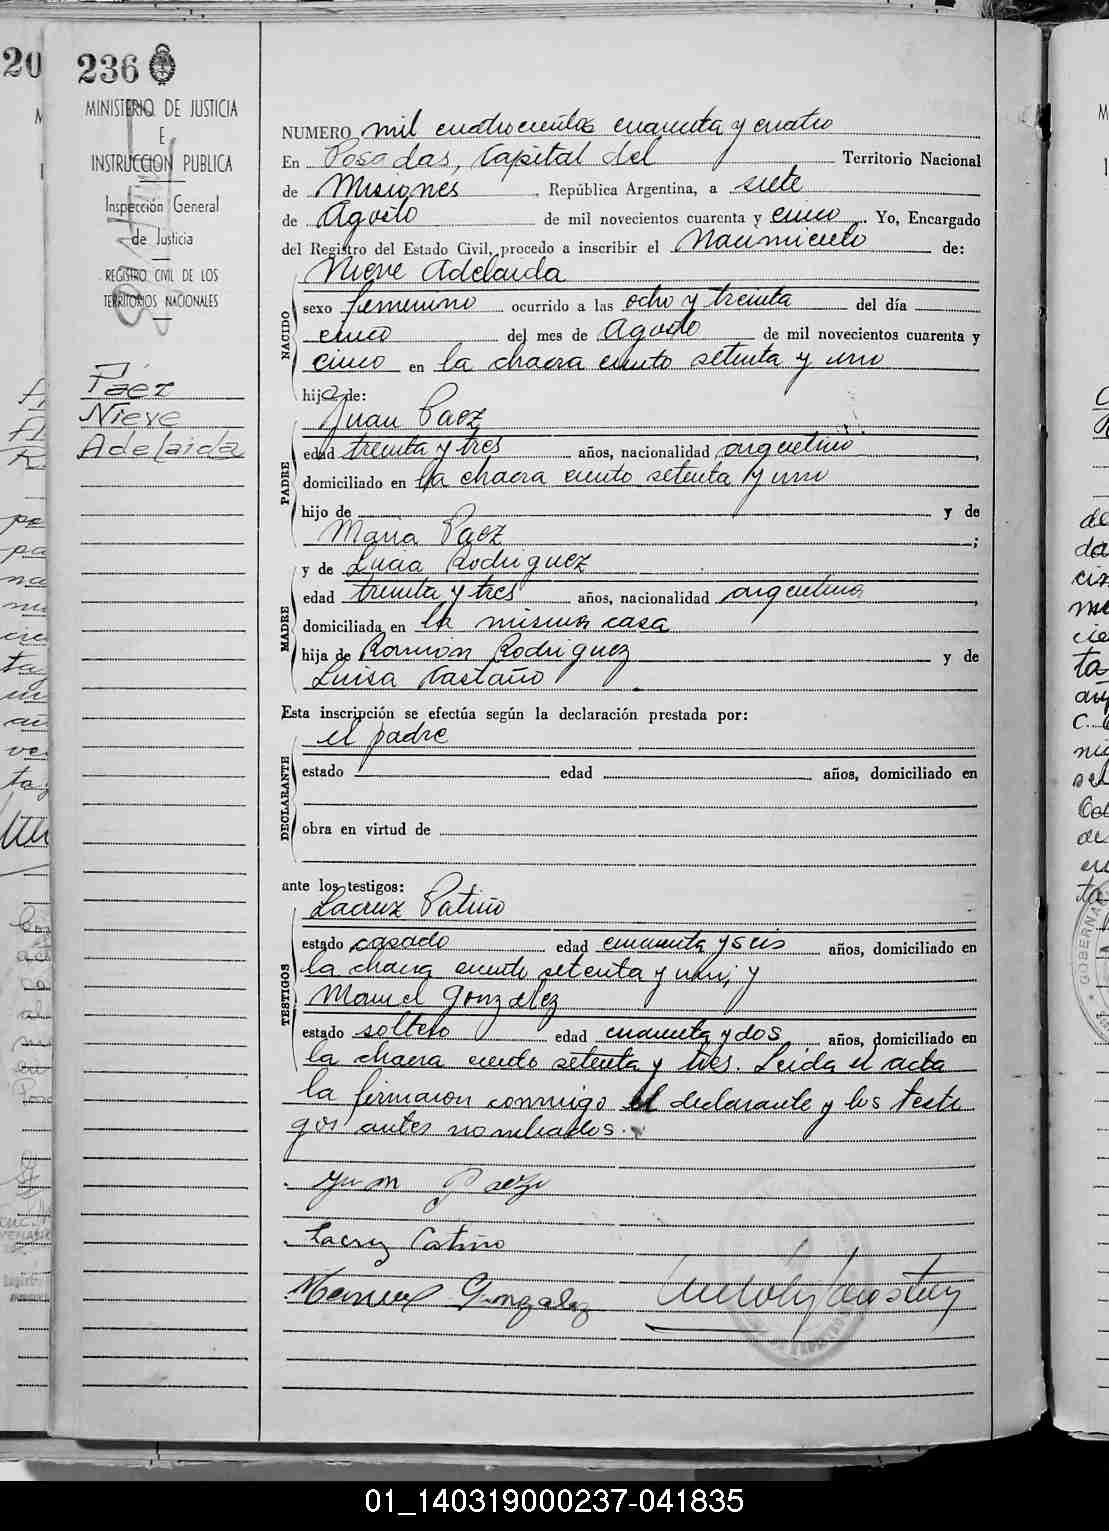 236
MINISTERIO DE JUSTICIA
E
INSTRUCCION PUBLICA
Inspección General
de Justicia
REGISTRO CIVIL DE LOS
TERRITORIOS NACIONALES
Páez
Nieve
Adelaida
NUMERO mil cuatrocientos cuarenta y cuatro
En Posadas, Capital del Territorio Nacional
de Misiones República Argentina, a siete
de Agosto de mil novecientos cuarenta y cinco. Yo, Encargado
del Registro del Estado Civil, procedo a inscribir el Nacimiento de:
NACIDO
Nieve Adelaida
sexo femenino ocurrido a las ocho y treinta del día
cinco del mes de Agosto de mil novecientos cuarenta y
cinco en la chacra ciento setenta y uno
hija de:
PADRE
Juan Paez
edad treinta y tres años, nacionalidad argentino,
domiciliado en la chacra ciento setenta y uno
hijo de y de
Maria Paez;
MADRE
y de Lucia Rodriguez
edad treinta y tres años, nacionalidad argentina,
domiciliada en la misma casa
hija de Ramón Rodriguez y de
Luisa Castaño
Esta inscripción se efectúa según la declaración prestada por:
DECLARANTE
el padre
estado edad años, domiciliado en
obra en virtud de
ante los testigos:
TESTIGOS
Lacruz Patiño
estado casado edad cuarenta y seis años, domiciliado en
la chacra ciento setenta y uno; y
Manuel González
estado soltero edad cuarenta y dos años, domiciliado en
la chacra ciento setenta y tres. Leida el acta
la firmaron conmigo el declarante y los testi
gos antes nombrados.
Juan Paez
Lacruz Patiño
Manuel Gonzalez
01_140319000237-041835